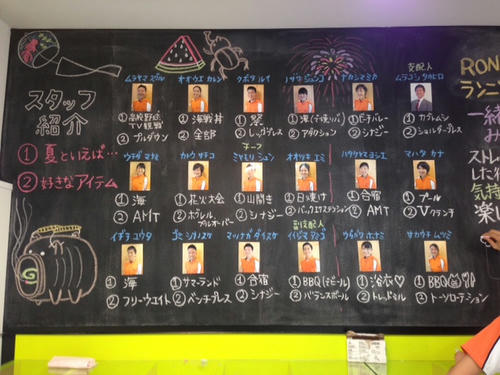 スタッフ
紹介
① 夏といえば…
② 好きなアイテム
ムラヤマ スグル
① 高校野球
TV観戦
② プルダウン
オオウエ カレン
① 海鮮丼
② 全部
クボタ ルイ
① 祭
② レッグプレス
ノザワ ジュンコ
② アダクション
ナカシマ ミカ
① ビーチバレー
② シナジー
支配人
ムラコシ タカヒロ
① カブトムシ
② ショルダープレス
ウチダ マナミ
① 海
② AMT
カトウ サチコ
① 花火大会
② ホグレル
プルオーバー
チーフ
ミヤモリ ジュン
① 山開き
② シナジー
オオツキ エミ
① 日焼け
② バックエクステンション
ハタケヤマ ヨシエ
① 合宿
② AMT
マハタ カナ
① プール
② Vクランチ
イヂチ ユウタ
① 海
② フリーウエイト
① サマーランド
② ベンチプレス
マツナガ ダイスケ
① 合宿
② シナジー
副支配人
イイジマ マミコ
① BBQ (でビール)
② バランスボール
① 浴衣♡
② トレッドミル
サカウチ ムツミ
① BBQ
② トーソローテーション
RON
ランニ
一緒
み
ストレ
した後
気持
楽